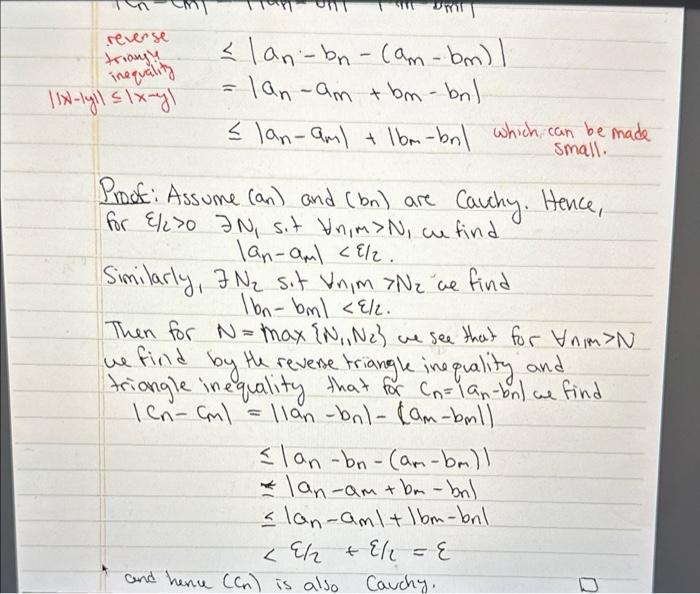 |cn - cm| = ||an - bn| - |am - bm||
reverse
triangle
inequality
||x|-|y|| ≤ |x-y|
≤ |an - bn - (am - bm)|
= |an - am + bm - bn|
≤ |an - am| + |bm - bn| which can be made
small.
Proof: Assume (an) and (bn) are Cauchy. Hence,
for ε/2>0 ∃N1 s.t ∀n,m>N1 we find
|an - am| < ε/2.
Similarly, ∃N2 s.t ∀n,m >N2 we find
|bn - bm| < ε/2.
Then for N = max {N1,N2} we see that for ∀n,m>N
we find by the reverse triangle inequality and
triangle inequality that for Cn=|an-bn| we find
|Cn - Cm| = ||an - bn| - |am - bm||
≤ |an - bn - (am - bm)|
= |an - am + bm - bn|
≤ |an - am| + |bm - bn|
< ε/2 + ε/2 = ε
and hence (Cn) is also Cauchy. □